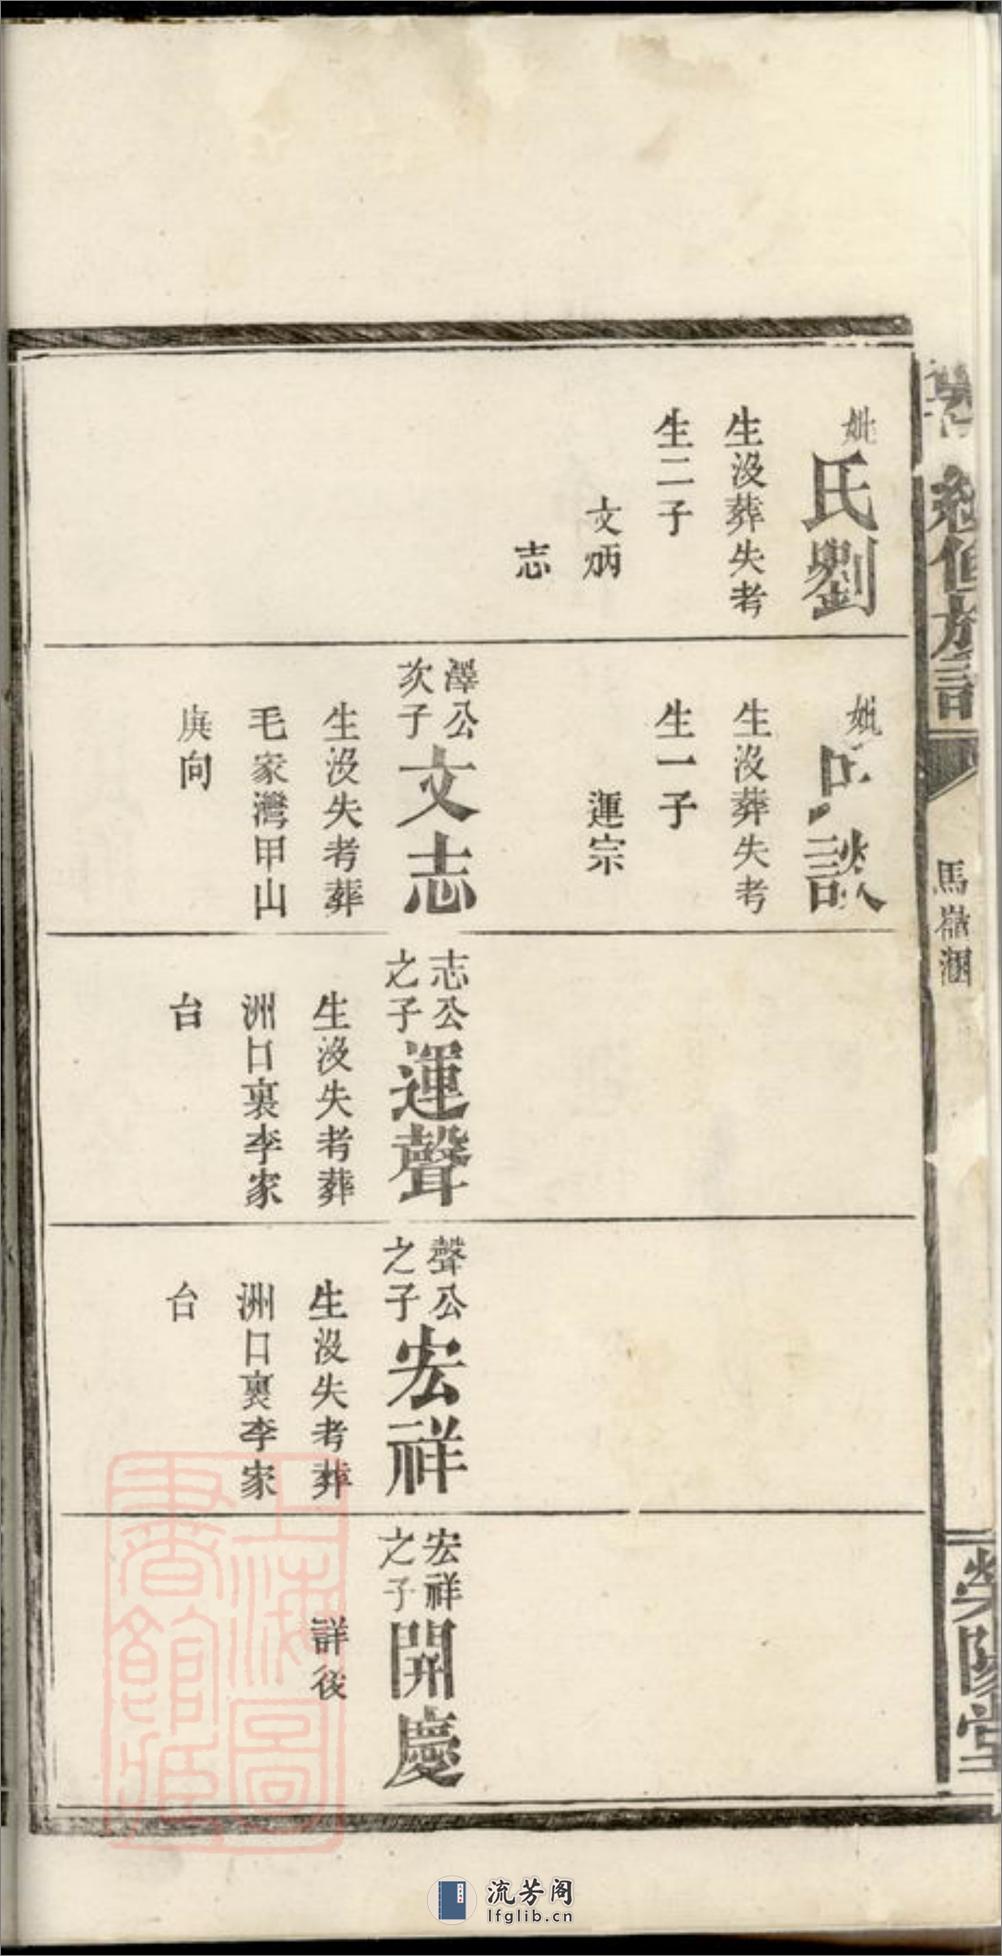 續修族譜
馬嶺
滎陽堂
妣
氏劉
生沒葬失考
生二子
文炳
志
妣
氏談
生沒葬失考
生一子
運宗
澤公
次子
文志
生沒失考葬
毛家灣甲山
庚向
志公
之子
運聲
生沒失考葬
洲口裏李家
台
聲公
之子
宏祥
生沒失考葬
洲口裏李家
台
宏祥
之子
開慶
詳後
上海圖
書館藏
流芳阁
lfglib.cn